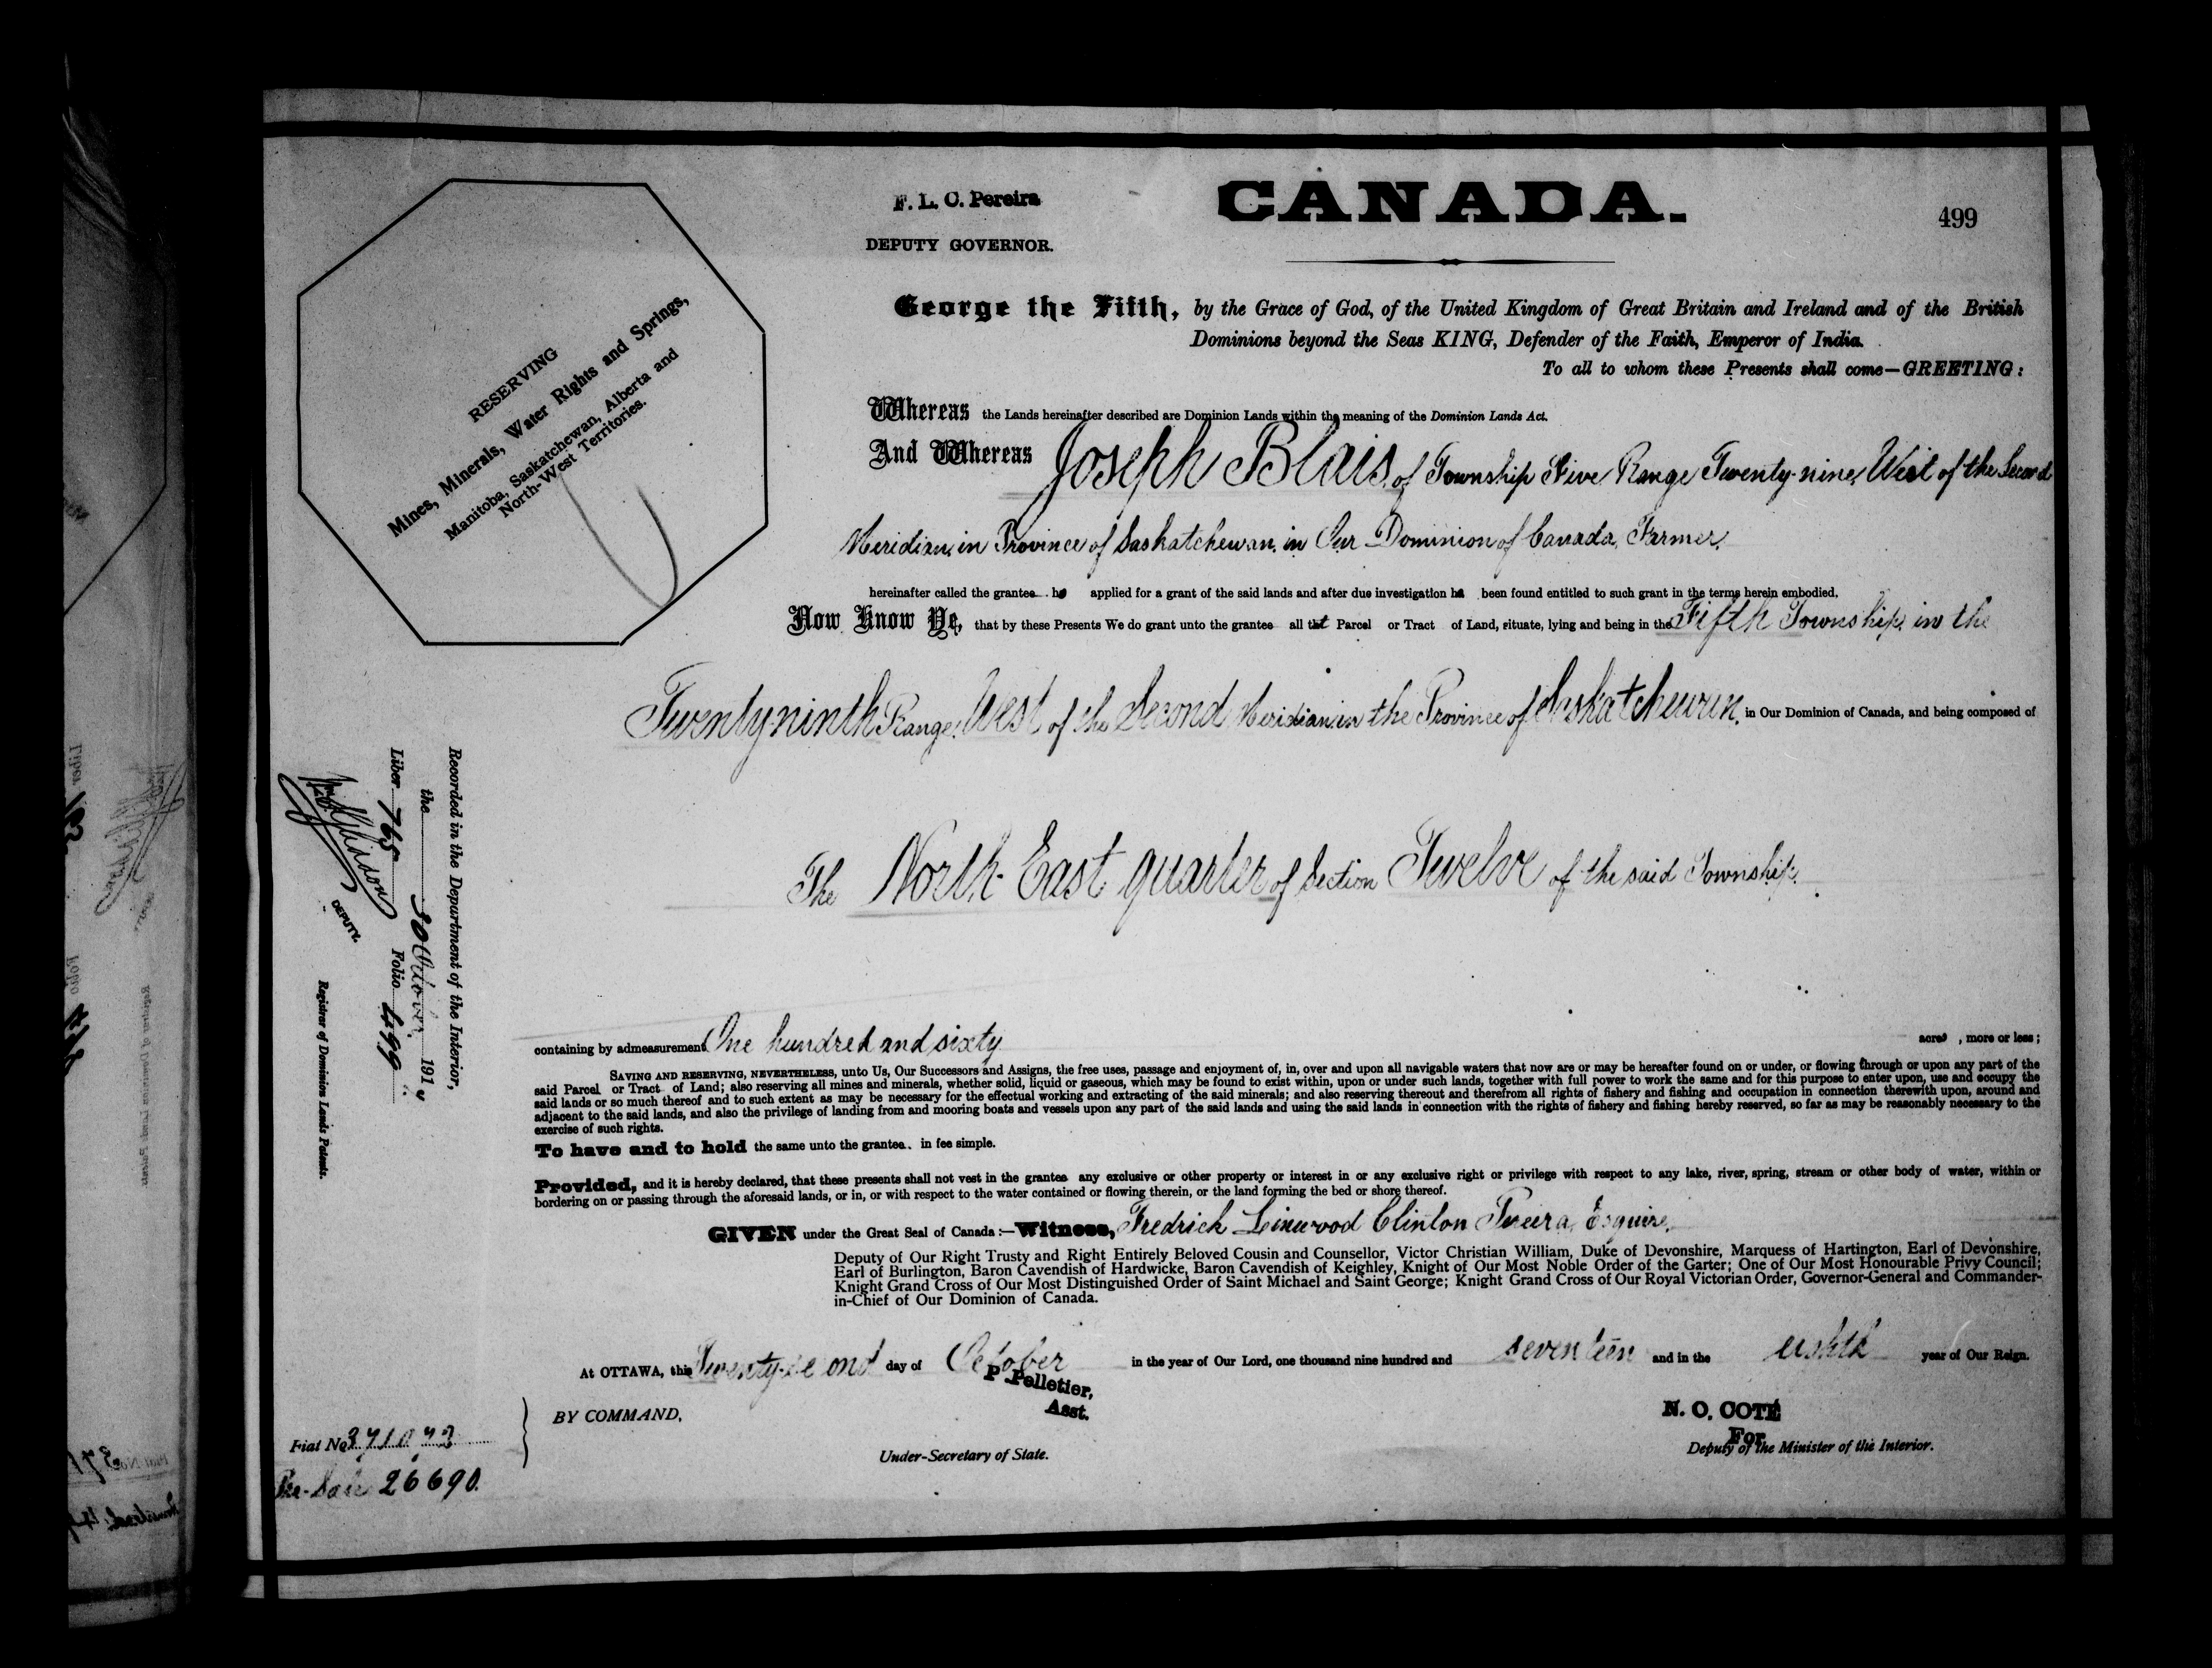 F. L. C. Pereira
DEPUTY GOVERNOR.
CANADA.
499
RESERVING
Mines, Minerals, Water Rights and Springs,
Manitoba, Saskatchewan, Alberta and
North-West Territories.
George the Fifth, by the Grace of God, of the United Kingdom of Great Britain and Ireland and of the British
Dominions beyond the Seas KING, Defender of the Faith, Emperor of India.
To all to whom these Presents shall come—GREETING:
Whereas the Lands hereinafter described are Dominion Lands within the meaning of the Dominion Lands Act.
And Whereas Joseph Blais, of Township Five Range Twenty-nine, West of the Second
Meridian, in Province of Saskatchewan, in Our Dominion of Canada, Farmer,
hereinafter called the grantee ha applied for a grant of the said lands and after due investigation ha been found entitled to such grant in the terms herein embodied.
Now Know Ye, that by these Presents We do grant unto the grantee all that Parcel or Tract of Land, situate, lying and being in the Fifth Township, in the
Twenty-ninth Range, West of the Second Meridian, in the Province of Saskatchewan, in Our Dominion of Canada, and being composed of
The North-East quarter of Section Twelve of the said Township.
containing by admeasurement One hundred and sixty acres, more or less;
SAVING AND RESERVING, NEVERTHELESS, unto Us, Our Successors and Assigns, the free uses, passage and enjoyment of, in, over and upon all navigable waters that now are or may be hereafter found on or under, or flowing through or upon any part of the
said Parcel or Tract of Land; also reserving all mines and minerals, whether solid, liquid or gaseous, which may be found to exist within, upon or under such lands, together with full power to work the same and for this purpose to enter upon, use and occupy the
said lands or so much thereof and to such extent as may be necessary for the effectual working and extracting of the said minerals; and also reserving thereout and therefrom all rights of fishery and fishing and occupation in connection therewith upon, around and
adjacent to the said lands, and also the privilege of landing from and mooring boats and vessels upon any part of the said lands and using the said lands in connection with the rights of fishery and fishing hereby reserved, so far as may be reasonably necessary to the
exercise of such rights.
To have and to hold the same unto the grantee in fee simple.
Provided, and it is hereby declared, that these presents shall not vest in the grantee any exclusive or other property or interest in or any exclusive right or privilege with respect to any lake, river, spring, stream or other body of water, within or
bordering on or passing through the aforesaid lands, or in, or with respect to the water contained or flowing therein, or the land forming the bed or shore thereof.
GIVEN under the Great Seal of Canada:—Witness, Fredrick Linwood Clinton Pereira, Esquire,
Deputy of Our Right Trusty and Right Entirely Beloved Cousin and Counsellor, Victor Christian William, Duke of Devonshire, Marquess of Hartington, Earl of Devonshire,
Earl of Burlington, Baron Cavendish of Hardwicke, Baron Cavendish of Keighley, Knight of Our Most Noble Order of the Garter; One of Our Most Honourable Privy Council;
Knight Grand Cross of Our Most Distinguished Order of Saint Michael and Saint George; Knight Grand Cross of Our Royal Victorian Order, Governor-General and Commander-
in-Chief of Our Dominion of Canada.
At OTTAWA, this Twenty-second day of October in the year of Our Lord, one thousand nine hundred and seventeen and in the eighth year of Our Reign.
P Pelletier,
Asst.
BY COMMAND,
Under-Secretary of State.
N. O. COTÉ
For
Deputy of the Minister of the Interior.
Fiat No 371043
Pre-Sale 26690.
Recorded in the Department of the Interior,
the 30 October 1917
Liber 765 Folio 499
DEPUTY.
Registrar of Dominion Lands Patents.